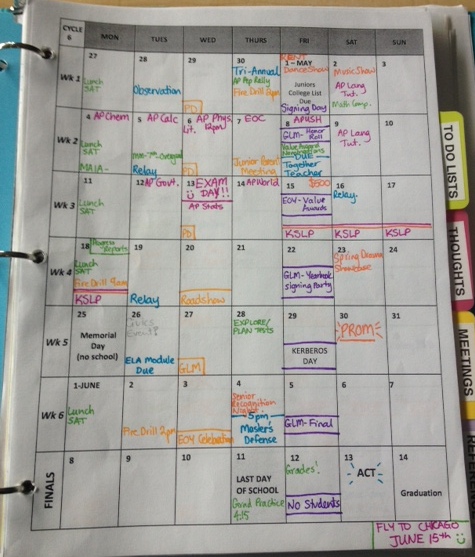 CYCLE 6 MON TUES WED THURS FRI SAT SUN
Wk 1
27
Lunch
SAT
28
Observation
29
PD
30
Tri-Annual
AP Rally
Fire Drill 2pm
1 - MAY
RENT
Dance Show
Juniors
College List
Due
Signing Day
2
Music Show
AP Lang
Tut.
Math Comp.
3
Wk 2
4 AP Chem
Lunch
SAT
MAIA-
5 AP Calc
Relay
6 AP Phys.
Lit. 12pm
PD
7 EOC
Junior Parent
Meeting
8 APUSH
GLM- Honor
Roll
Value Award
Nominations
DUE
Together
Teacher
9
AP Lang
Tut.
10
Wk 3
11
Lunch
SAT
12 AP Govt.
13 EXAM
DAY!!
AP Stats
PD
14 AP World
15 $500
EOY-Value
Awards
KSLP
16
Relay
KSLP
17
KSLP
Wk 4
18 Progress
Reports
Lunch
SAT
Fire Drill 9am
KSLP
19
Relay
20
Roadshow
21
22
GLM-Yearbook
signing Party
23
Spring Dance
Showcase
24
Wk 5
25
Memorial
Day
(no school)
26
ELA Module
Due
27
GLM
28
EXPLORE/
PLAN Tests
29
KERBEROS
DAY
30
PROM
31
Wk 6
1-JUNE
Lunch
SAT
2
Fire Drill 2pm
3
EOY Celebration
4
Senior
Recognition
Night
5pm
Master's
Defense
5
GLM-Final
6
7
FINALS
8
9
10
11
LAST DAY
OF SCHOOL
Good Practice
4:15
12
Grades!
No Students
13
ACT
14
Graduation
FLY TO CHICAGO
JUNE 15th
TO DO LISTS
THOUGHTS
MEETINGS